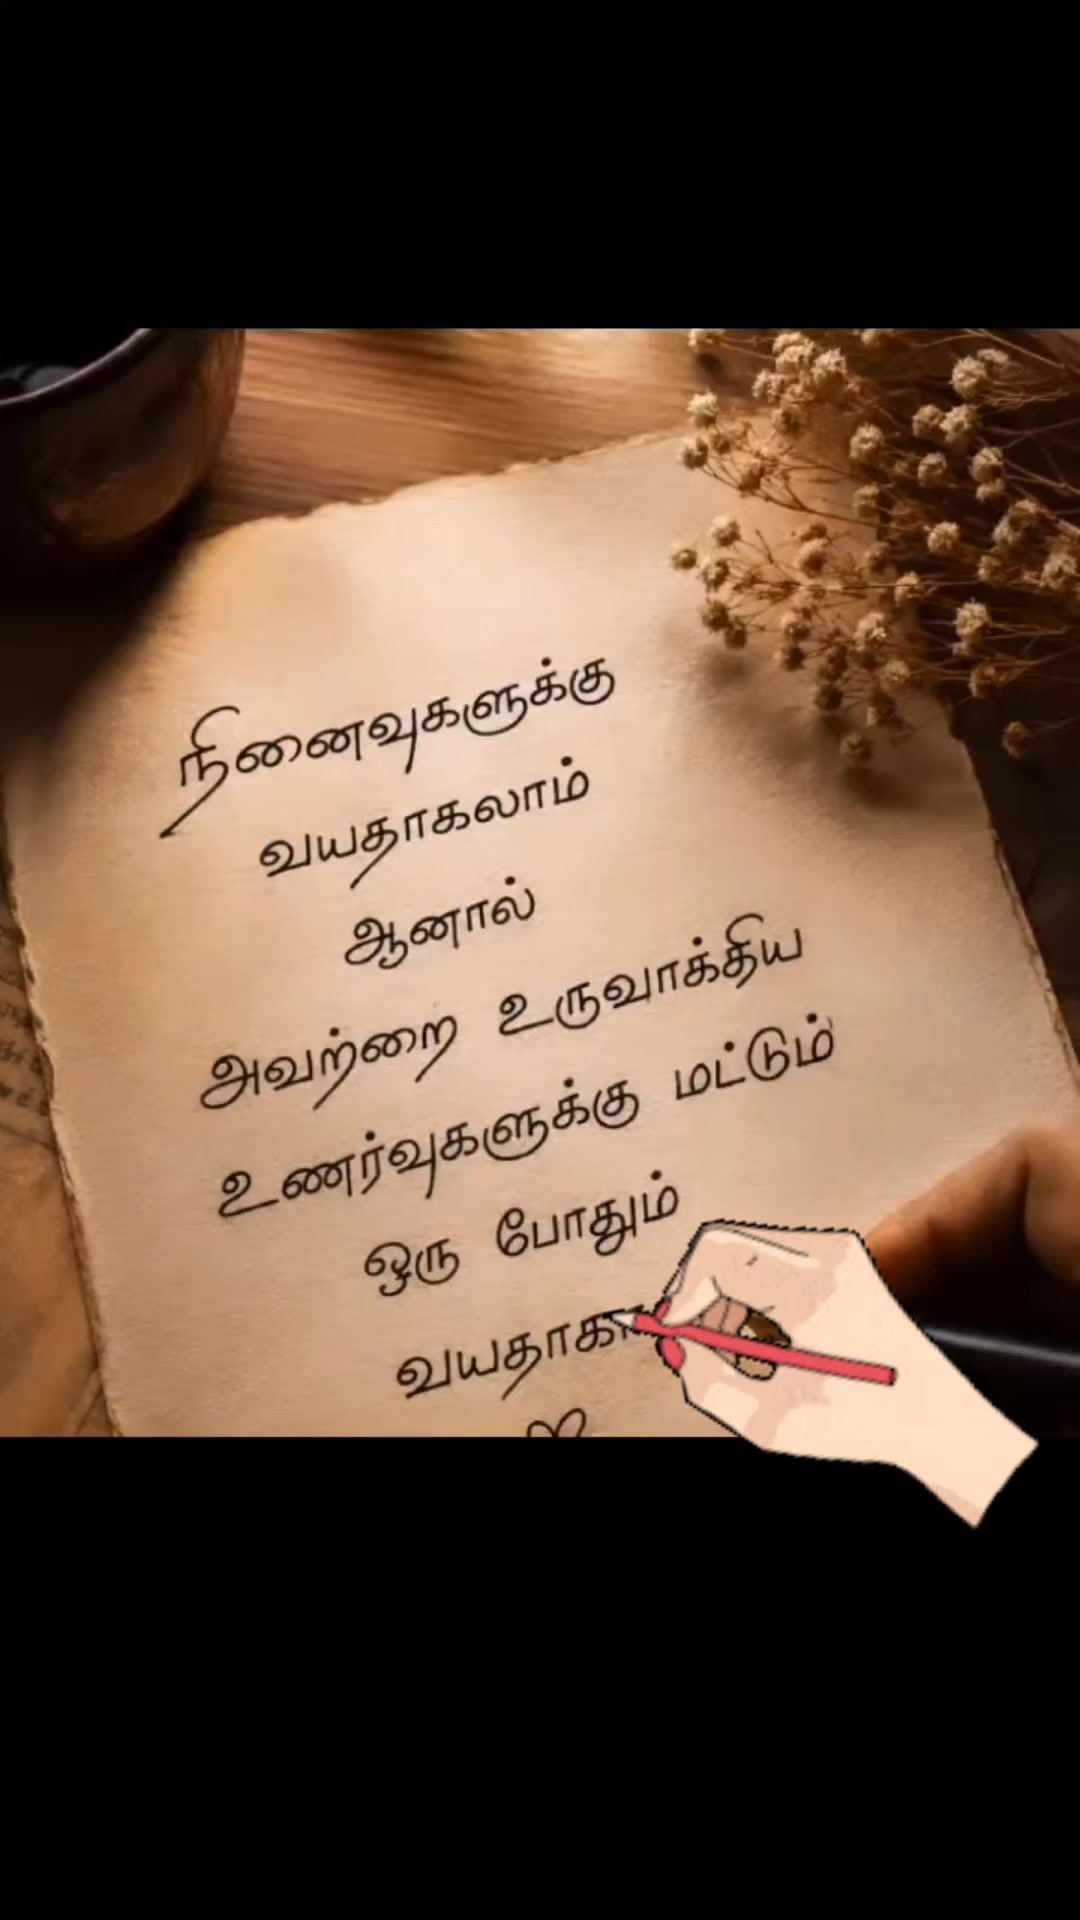 நினைவுகளுக்கு
வயதாகலாம்
ஆனால்
அவற்றை உருவாக்திய
உணர்வுகளுக்கு மட்டும்
ஒரு போதும்